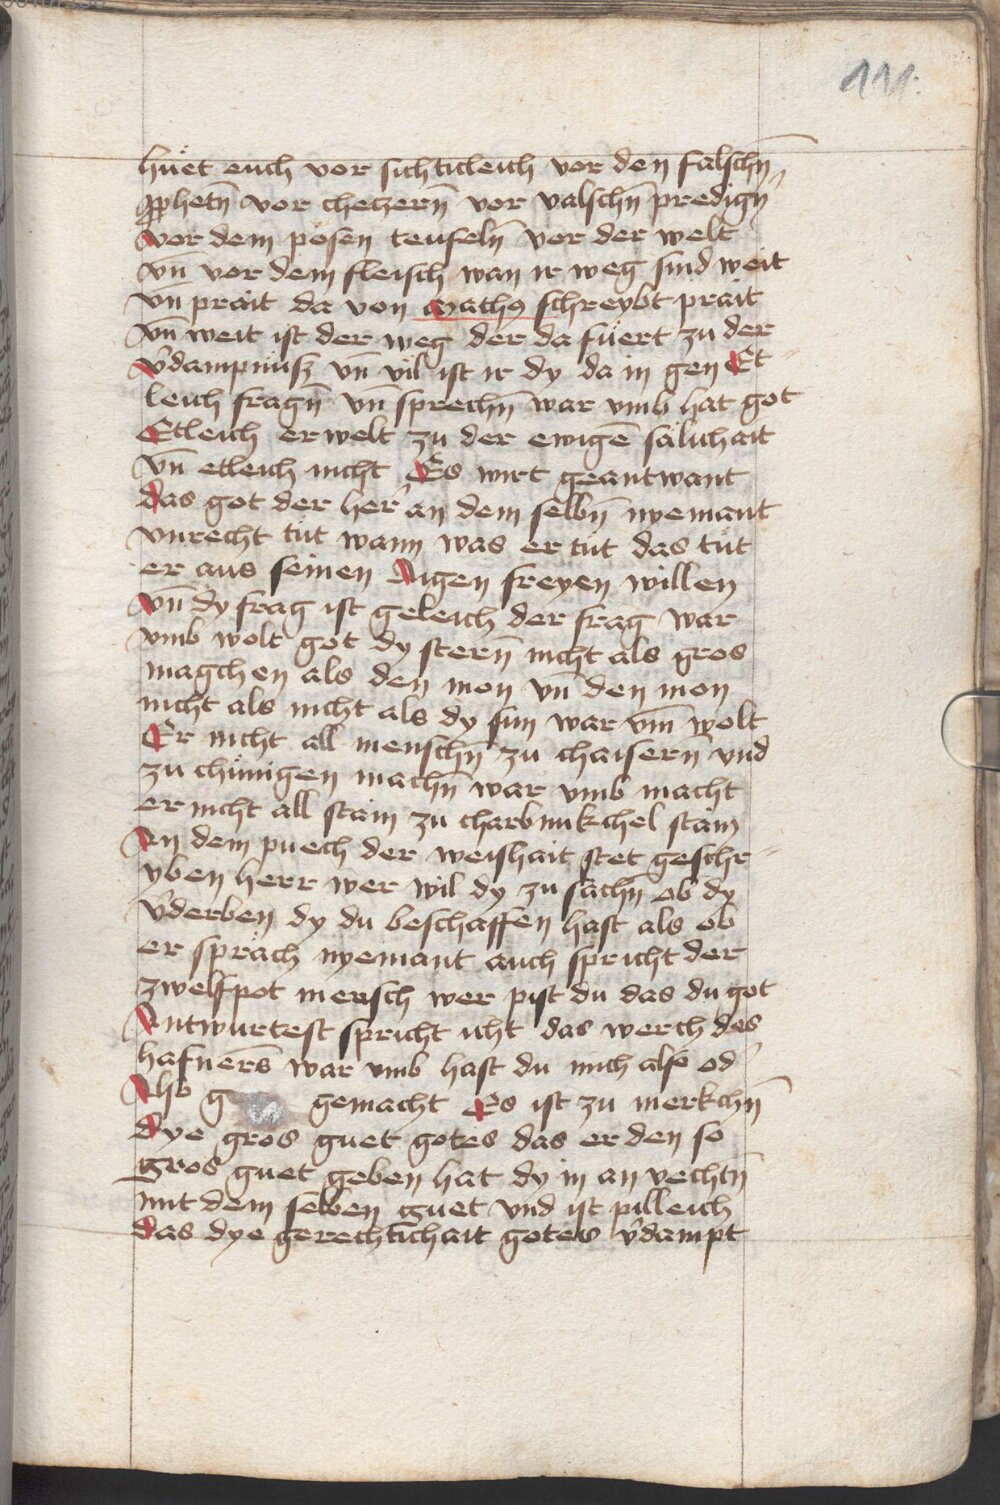 111.
huet euch vor sichticleich vor den falschn̄
ꝓphetn̄ vor checzern̄ vor valschn̄ predign̄
vor dem pösen teufeln̄ vor der welt
vn̄ vor dem fleisch wan ir weg sind weit
vn̄ prait da von Matheꝰ schreybt prait
vn̄ weit ist der weg der da fuert zu der
v̄dampnüsz vn̄ vil ist ir dy da in gen Et
leich fragn̄ vn̄ sprechn̄ war vmb hat got
Etleich erwelt zu der ewigē sälichait
vn̄ etleich nicht Es wirt geantwant
das got der her̄ an dem selbn̄ nyemant
vnrecht tüt wann was er tüt das tüt
er aus seinen Aigen freyen willen
vn̄ dy frag ist geleich der frag war
vmb wolt got dy stern̄ nicht als gros
magchen als den mon vn̄ den mon
nicht als nicht als dy sun war vm̄ wolt
Er nicht all menschn̄ zu chaisern vnd
zu chünigen machn̄ war vmb macht
er nicht all stain zu charbunkchel stain
An dem puech der weishait stet geschr
yben herr wer wil dy zu sachn̄ ob dy
v̄derben dy du beschaffen hast als ob
er spräch nyemant auch spricht der
zwelfpot mensch wer pist du das du got
Antwurtest spricht icht das werch des
hafners war vmb hast du mich also od̄
Also g gemacht Es ist zu merkchn̄
dye gros guet gotes das er den so
gros guet geben hat dy in an vechtn̄
mit dem selben guet vnd ist pilleich
das dye gerechtichait gotes v̄dampt